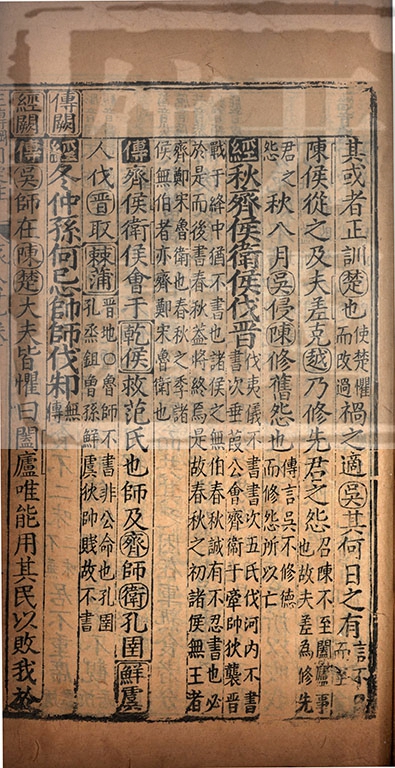 其或者正訓楚也使楚懼而改過禍之適吳其何日之有言不而至
陳侯從之及夫差克越乃修先君之怨召陳不至闔廬事也故夫差為修先
君之怨秋八月吳侵陳修舊怨也傳言吳不修德而修怨所以亡
經秋齊侯衛侯伐晉伐夷儀不書書次五氏伐河內不書書次垂葭公會齊衛于牽帥狄襲晉
戰于絳中猶不書也諸侯之無伯春秋誠有不忍書也必於是而後書春秋蓋將終焉是故春秋之初諸侯無王者
齊鄭宋魯衛也春秋之季諸侯無伯者亦齊鄭宋魯衛也
傳齊侯衛侯會于乾侯救范氏也師及齊師衛孔圉鮮虞
人伐晉取棘蒲晉地○魯師不書非公命也孔圉孔烝鉏曾孫鮮虞狄帥賤故不書
傳闕
經冬仲孫何忌帥師伐邾無傳
經闕
傳吳師在陳楚大夫皆懼曰闔廬唯能用其民以敗我於